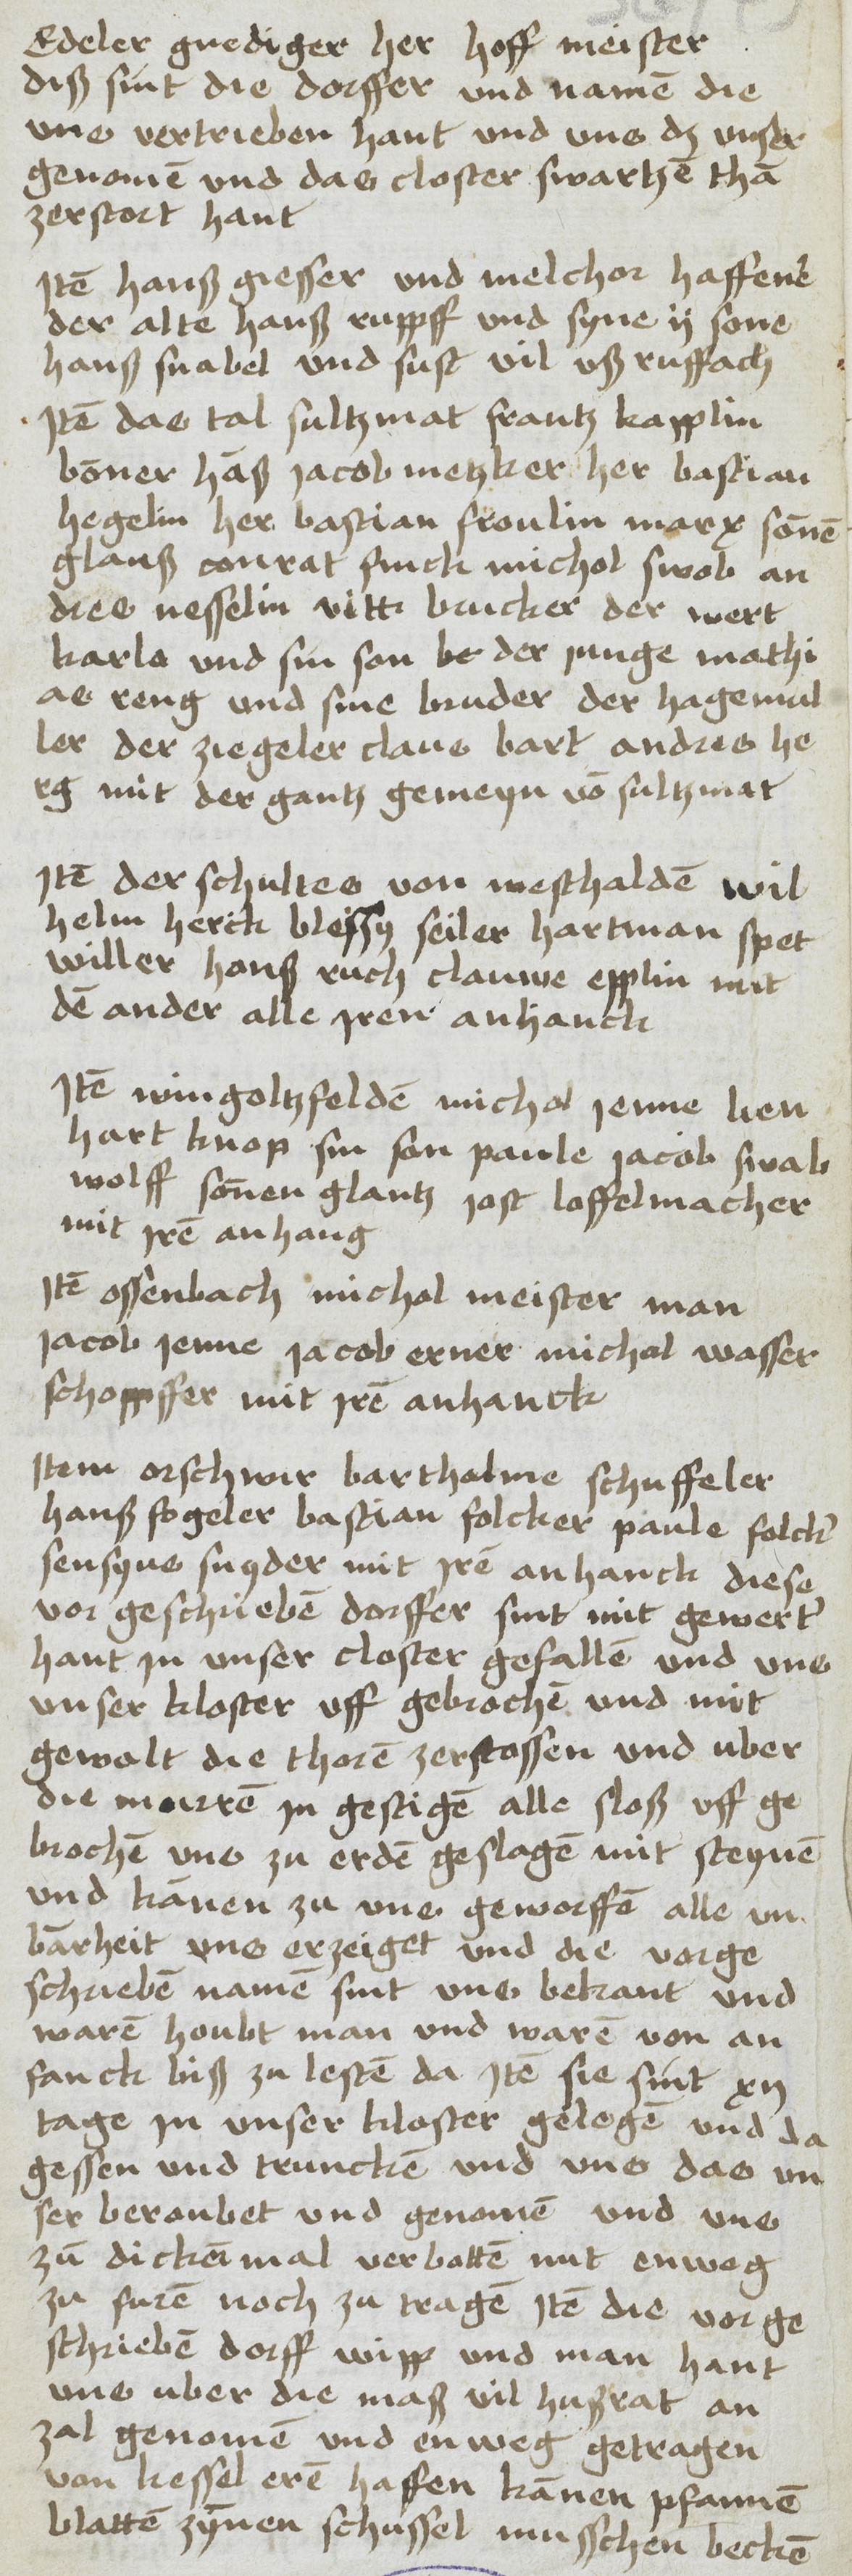 Edeler gnediger her hoff meister
diß sint die dorffer und namē die
uns vertrieben hant und uns dz unser
genomē und das closter swartzē thā
zerstort hant
Jtē hanß giesser und melchor haffener
der alte hanß rupff und syne ij sone
hanß snabel und sust vil uß ruffach
Jtē das tal sultzmat frantz kapplin
bōner hāß jacob metzker her bastian
hegelin her bastian froulin marx sōnē
glanß conrat finck michol swob an
dres nesselin vitt brucker der wert
karle und sin son der junge mathi
as reng und sine bruder der hagemul
ler der ziegeler claus bart andres he
rg mit der gantz gemeyn vō sultzmat
Jtē der schultes von westhaldē wil
helm herck blessy seiler hartman spet
willer hanß ruch clauwe epplin mit
dē ander alle jren anhanck
Jtē wingoltzfeldē michol jenne lien
hart knop sin son paule jacob swab
wolff sōnen glantz jost loffelmacher
mit jrē anhang
Jtē ossenbach michol meister man
jacob jenne jacob erner michol wasser
schoppffer mit jrē anhanck
Jtem orschwir bartholme schuffeler
hanß fogeler bastian folcker paule folcker
sensyns snyder mit jrē anhanck diese
vor geschriebē dorffer sint mit gewerter
hant jn unser closter gefallē und uns
unser kloster uff gebrochē und mit
gewalt die thorē zerstossen und uber
die murrē jn gestigē alle sloß uff ge
brochē uns zu erdē geslagē mit steynē
und kānen zu uns geworffē alle un
bārheit uns erzeiget und die vorge
schriebē namē sint uns bekant und
warē houbt man und warē von an
fanck biß zu lestē da Jtē sie sint xij
tage jn unser kloster gelegē und da
gessen und trunckē und uns das un
ser beroubet und genomē und uns
zū dickermal verbottē nut enweg
zu furē noch zu tragē Jtē die vorge
schriebē dorff wipp und man hant
uns uber die maß vil hußrat an
zal genomē und enweg getragen
von kessel erē haffen kānen pfannē
blattē zȳnen schussel musschen beckē